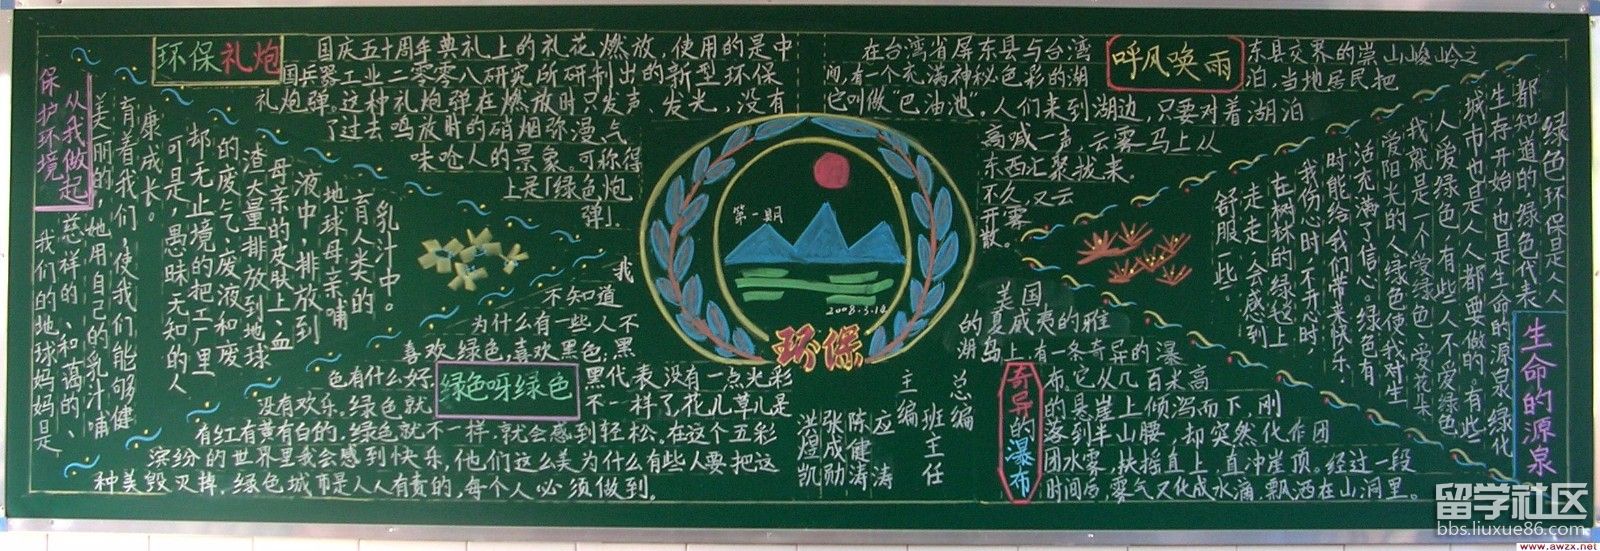 环保礼炮
国庆五十周年典礼上的礼花燃放,使用的是中
国兵器工业二零零八研究所研制出的新型环保
礼炮弹。这种礼炮弹在燃放时只发声、发光,没有
了过去鸣放时的硝烟弥漫气
味呛人的景象。可称得
上是「绿色炮
弹」
呼风唤雨
在台湾省屏东县与台湾
东县交界的崇山峻岭之
间,有一个充满神秘色彩的湖
泊,当地居民把
它叫做“巴油池”。人们来到湖边,只要对着湖泊
高喊一声,云雾马上从
东西汇聚拢来。
不久,又云
开雾
散。
保护环境
从我做起
我们的地球妈妈是
慈祥的、和蔼的、
美丽的,她用自己的乳汁哺
育着我们,使我们能够健
康成长。
可是,愚昧无知的人
却无止境的把工厂里
的废气,废液和废
渣大量排放到地球
母亲的皮肤上,血
液中,排放到
地球母亲哺
育人类的
乳汁中。
第一期
2008.3.14
环保
绿色呀绿色
我
不知道
为什么有一些人不
喜欢绿色,喜欢黑色;黑
色有什么好,
黑代表没有一点光彩
没有欢乐。绿色就
不一样了,花儿草儿是
有红有黄有白的,绿色就不一样,就会感到轻松。在这个五彩
缤纷的世界里我会感到快乐,他们这么美为什么有些人要把这
种美毁灭掉,绿色城市是人人有责的,每个人必须做到。
总编
班主任
主编
应涛
陈健涛
张成勋
洪煜凯
奇异的瀑布
美国
的夏威夷的雅
湖岛上有一条奇异的瀑
布。它从几百米高
的悬崖上倾泻而下,刚
落到半山腰,却突然化作团
团水雾,扶摇直上,直冲崖顶。经过一段
时间后,雾气又化成水滴,飘洒在山洞里。
生命的源泉
绿色环保是人人
都知道的,绿色代表
生命的源泉,绿化
生存开始,也是
城市也是人人都要做的。有些
人爱绿色,有些人不爱绿色
我就是一个爱绿色、爱花朵
爱阳光的人,绿色使我对生
活充满了信心。绿色有
时能给我们带来快乐。
我份心时,不开心时,
在树林的绿径上
走一走,会感到
舒服一些。
留学社区
bbs.liuxue86.com
www.awzx.net